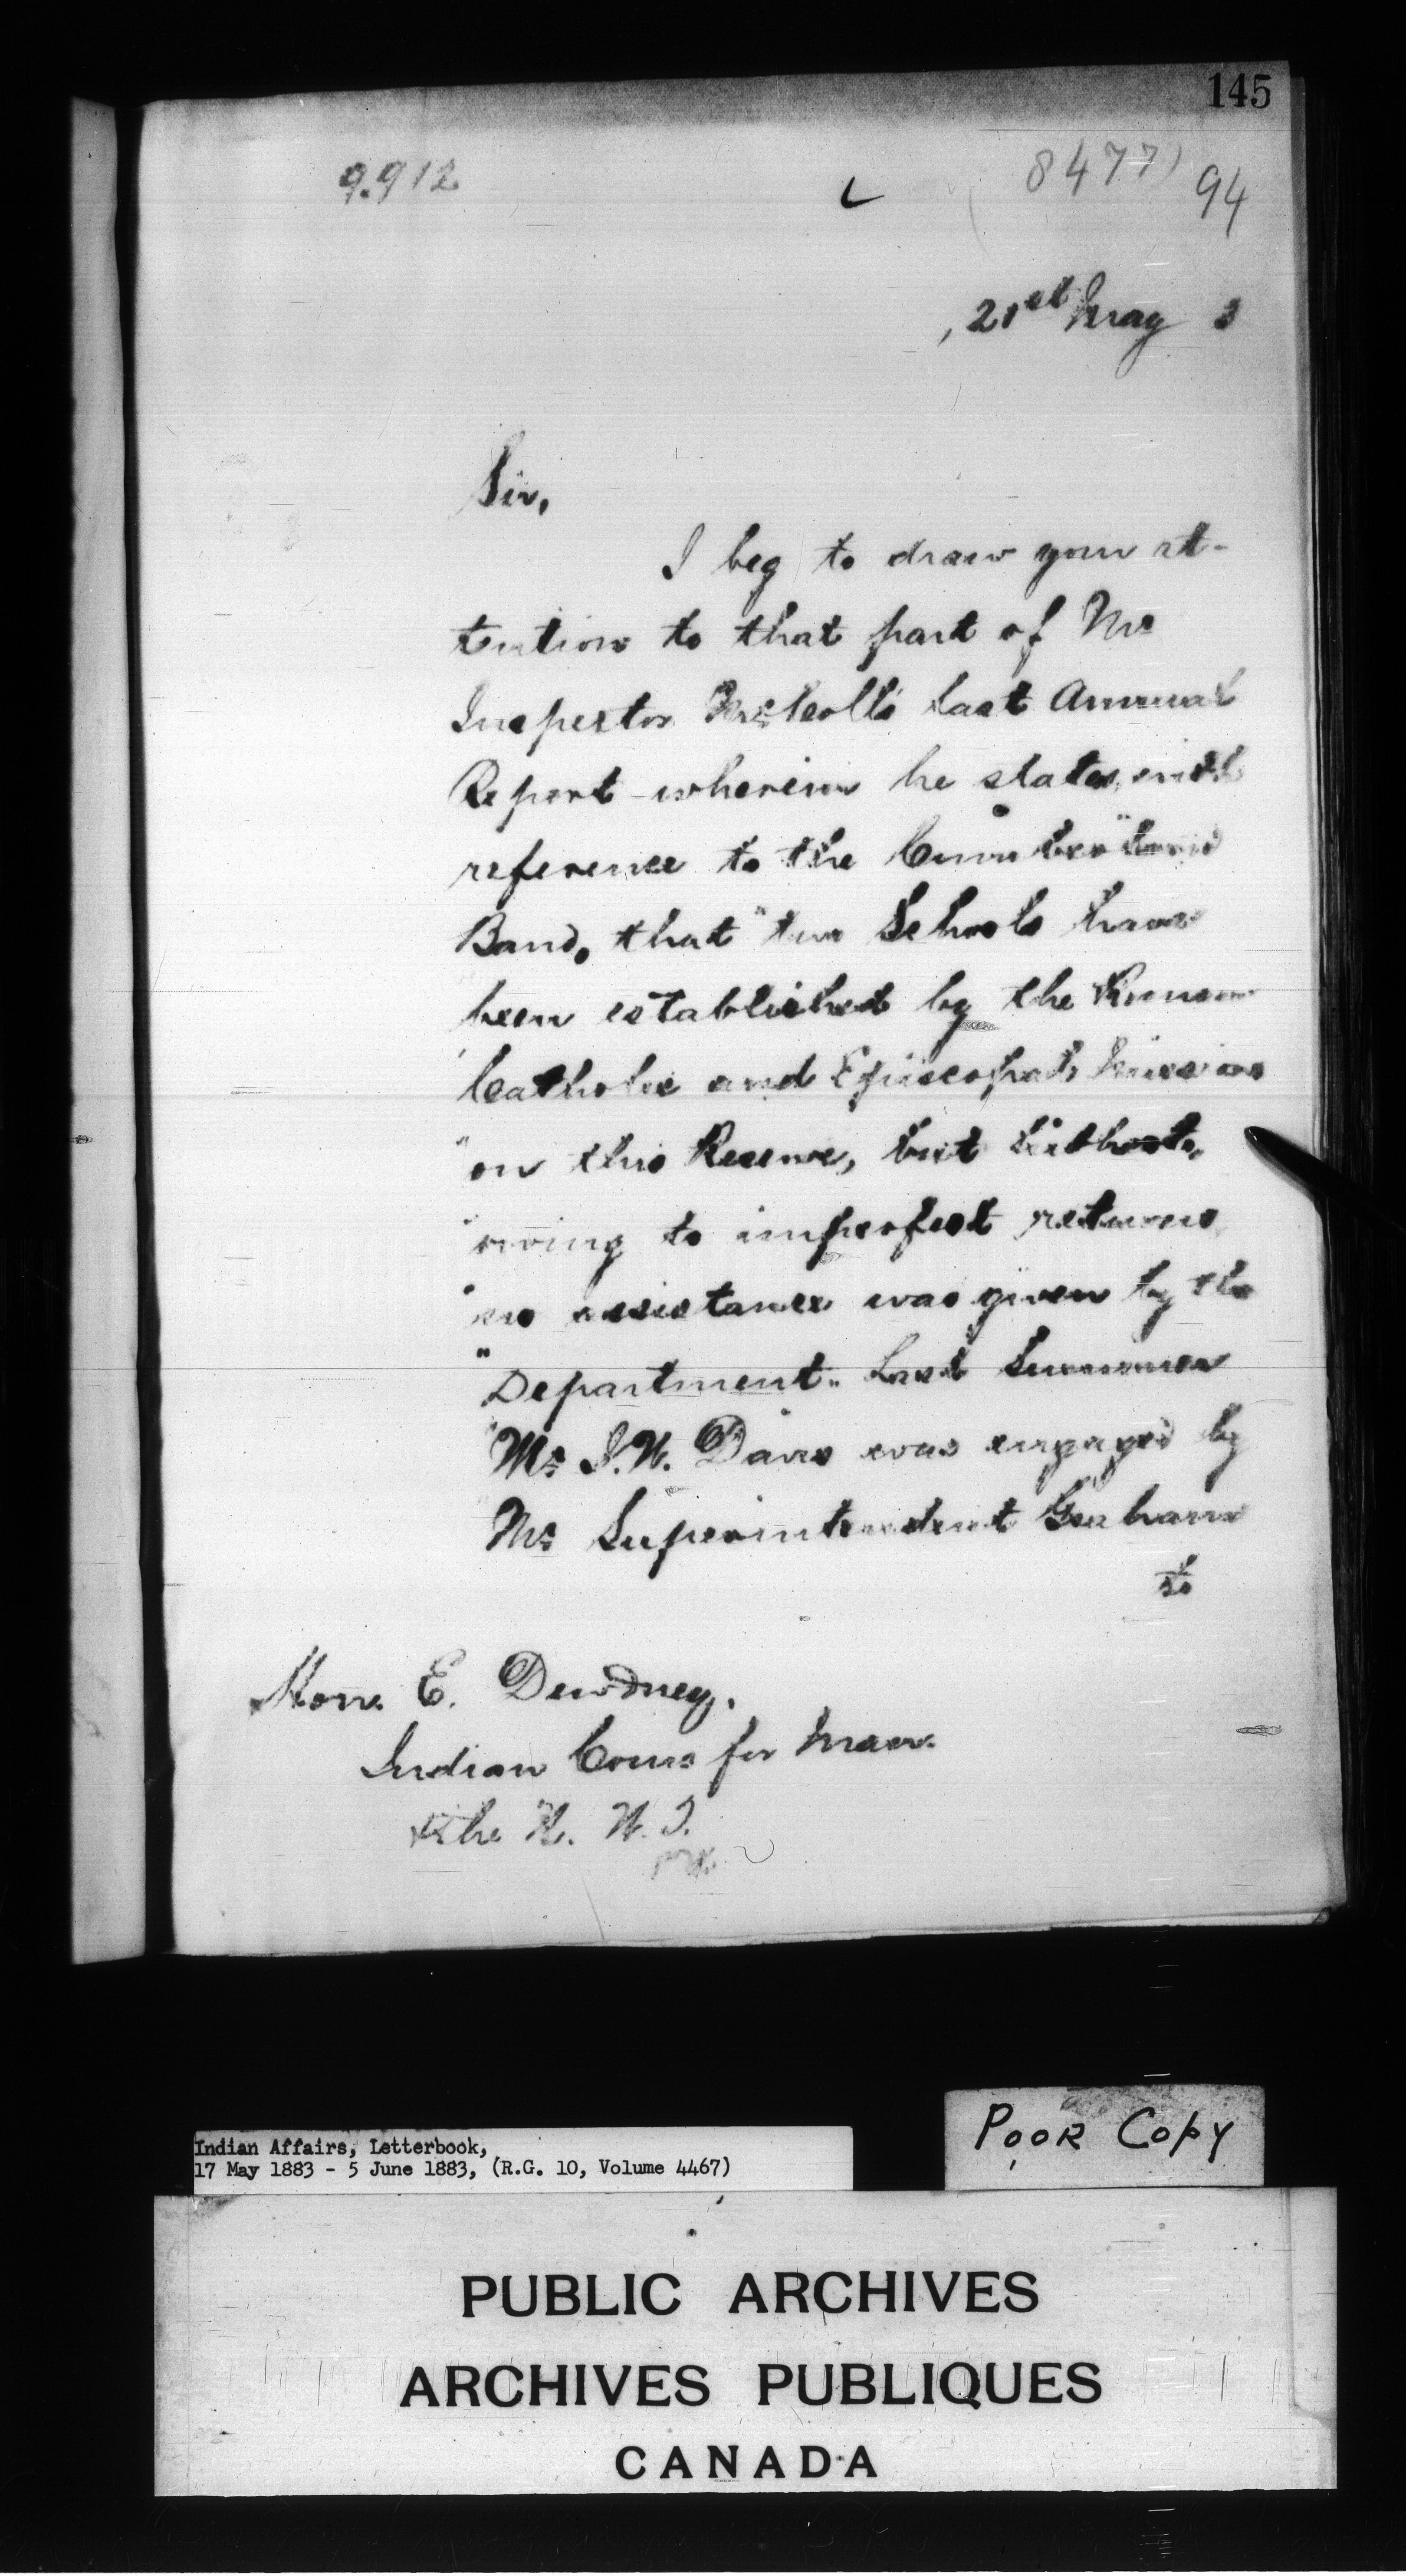 145
9.912
8477)
94
21st May 3
Sir,
I beg to draw your at-
tention to that part of Mr
Inspector McColl's last Annual
Report wherein he states, with
reference to the Cumberland
Band, that "two Schools have
been established by the Roman
Catholic and Episcopal Missions
"on this Reserve, but hitherto,
"owing to imperfect returns,
"no assistance was given by the
"Department. Last Summer
"Mr J. W. Davis was engaged by
Mr Superintendent Graham
to
Hon. E. Dewdney.
Indian Comr for Man.
& the N. W. T.
Indian Affairs, Letterbook,
17 May 1883 - 5 June 1883, (R.G. 10, Volume 4467)
POOR COPY
PUBLIC ARCHIVES
ARCHIVES PUBLIQUES
CANADA